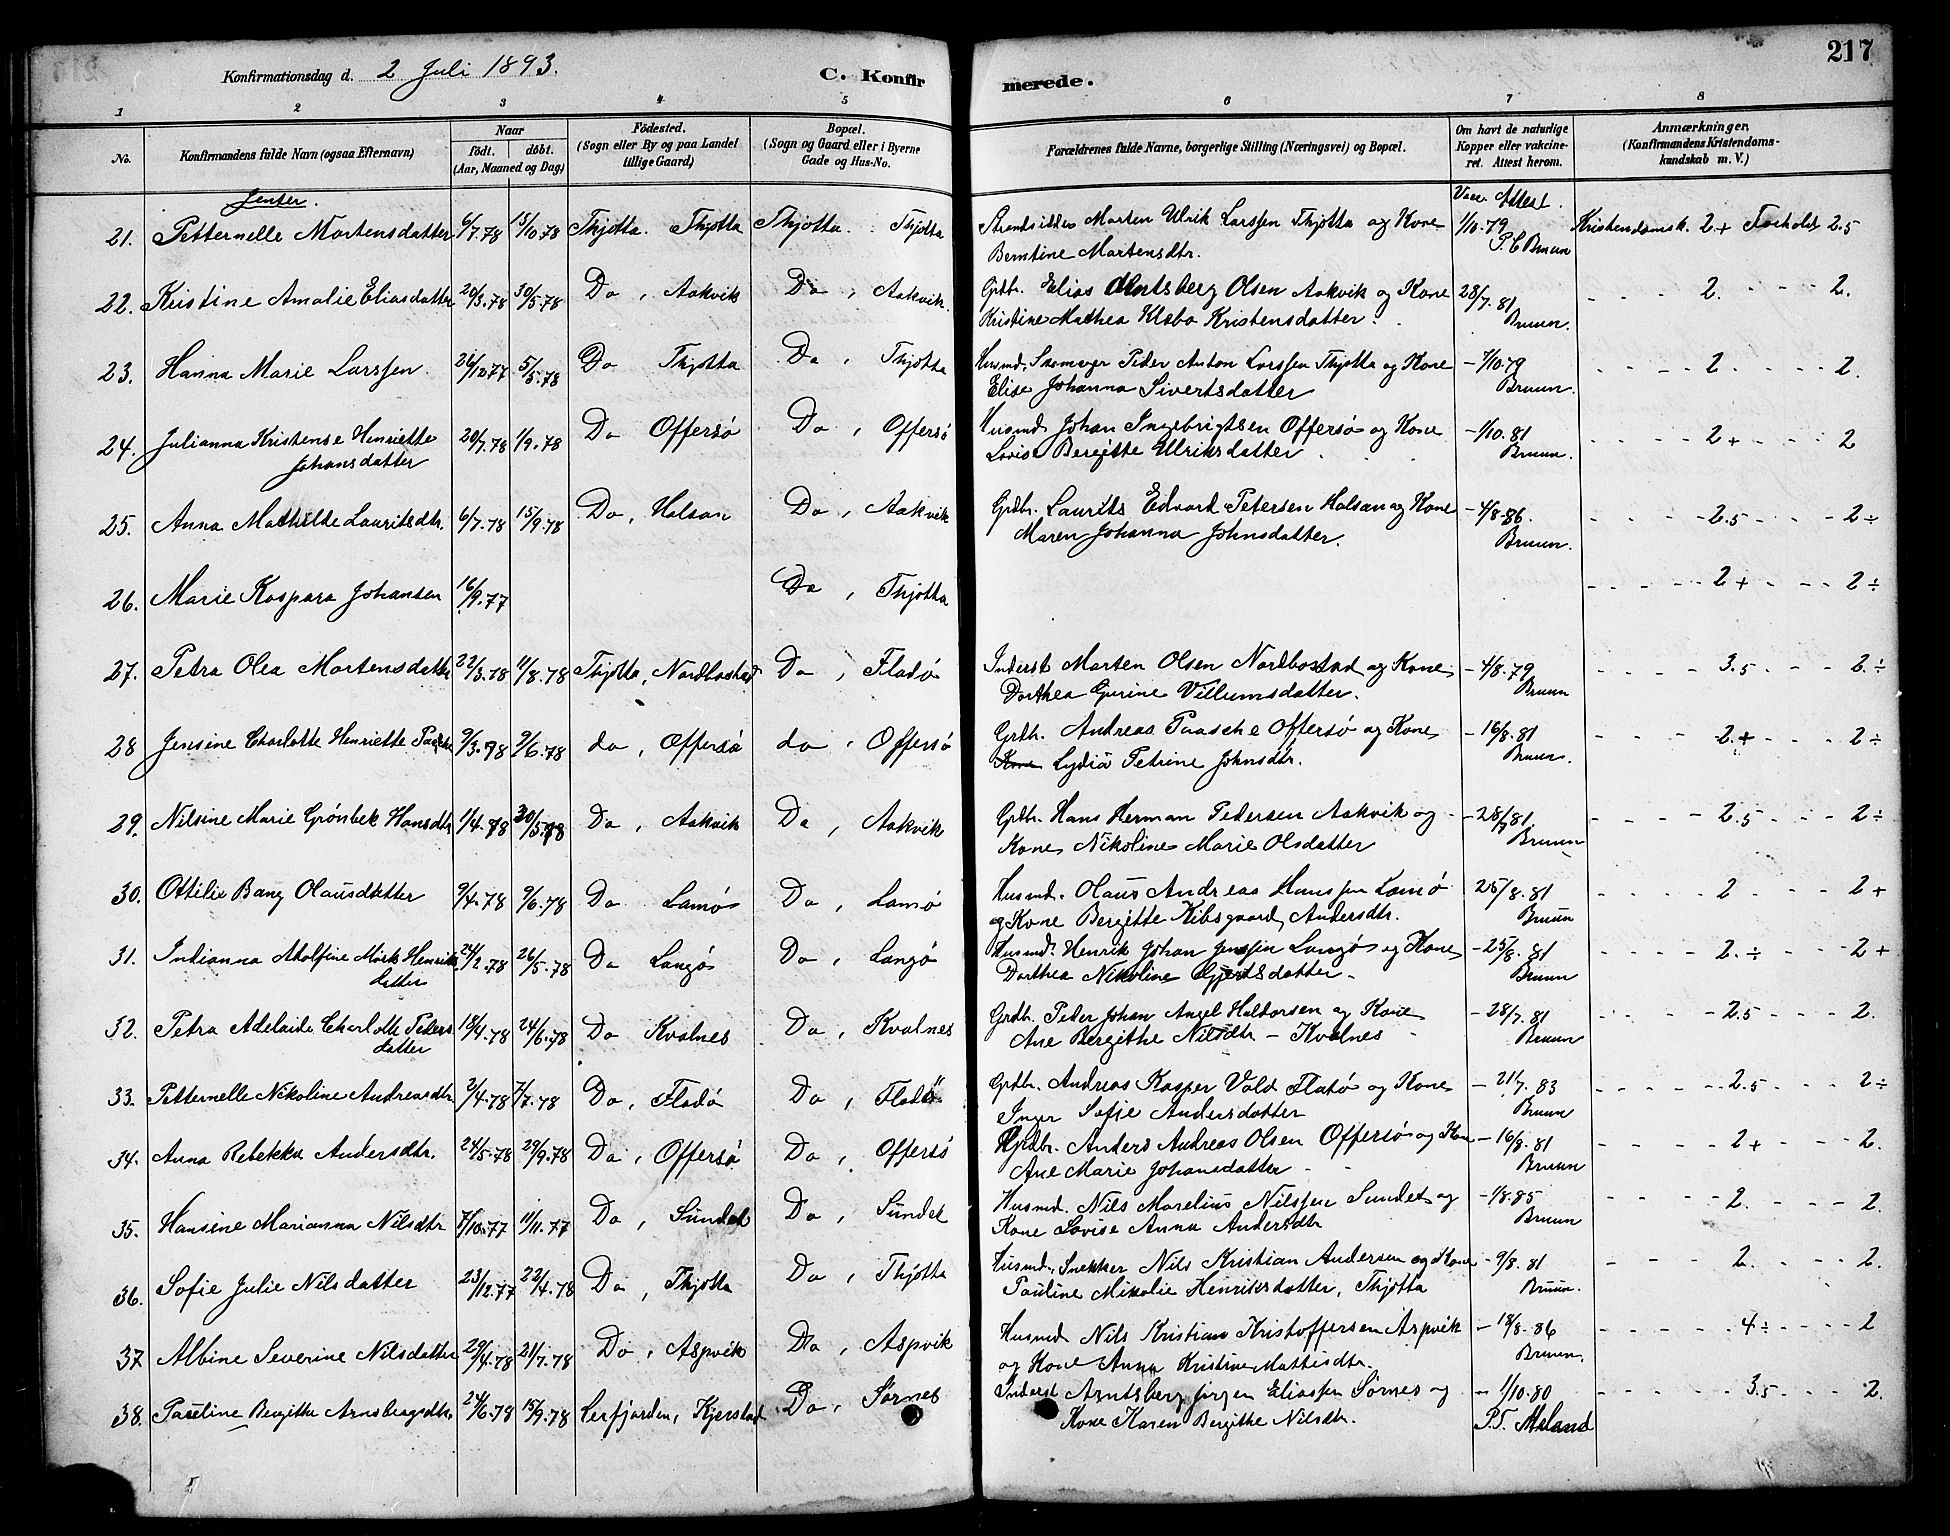 217
Konfirmationsdag d. 2 Juli 1893.
C. Konfirmerede.
1 2 3 4 5 6 7 8
No.
Konfirmandens fulde Navn (ogsaa Efternavn)
Naar
födt. döbt.
(Aar, Maaned og Dag)
Födested.
(Sogn eller By og paa Landet
tillige Gaard)
Bopæl.
(Sogn og Gaard eller i Byerne
Gade og Hus-No.
Forældrenes fulde Navne, borgerlige Stilling (Næringsvei) og Bopæl.
Om havt de naturlige
Kopper eller vakcine-
ret. Attest herom.
Anmærkninger.
(Konfirmandens Kristendoms-
kundskab m. V.)
Jenter.
Vacc. Attest.
21. Petternelle Mortensdatter 6/7.78 13/10.78 Thjøtta. Thjøtta Thjøtta. Thjøtta Strandsidder Morten Ulrik Larssen Thjøtta og Kone 1/10.79 Kristendomsk. 2+ Forhold 2.5
Berntine Martensdtr. P. C Bruun
22. Kristine Amalie Eliasdatter 20/3.78 30/5.78 Do, Aakvik Do, Aakvik. Grdbr. Elias Arntsberg Olsen Aakvik og Kone 28/7.81 - - - - 2. - - - 2.
Kristine Mathea Klæbo Kristensdatter. Bruun.
23. Hanna Marie Larssen 26/12.77 5/5.78 Do Thjøtta Do, Thjøtta Husmd, Skomager Peder Anton Larssen Thjøtta og Kone - 7/10.79 - - - - 2 - - - - 2.
Elise Johanna Sivertsdatter Bruun.
24. Julianna Kristense Henriette 20/7.78 1/9.78 Do Offersø Do, Offersø Husmd Johan Ingebrigtsen Offersø og Kone - 1/10.81 - - - - 2+ - - - - 2
Johansdatter Lovise Bergitte Ulriksdatter Bruun.
25. Anna Mathilde Lauritsdtr. 6/7.78 15/9.78 Do, Halsan Do, Aakvik Grdbr. Laurits Edvard Petersen Halsan og Kone - 4/8-86. - - - - 2.5 - - - 2÷
Maren Johanna Johnsdatter. Bruun.
26. Marie Kaspara Johansen 16/9.77 Do, Thjøtta - - - - 2+ - - - 2÷
27. Petra Olea Mortensdatter 22/3.78 11/8.78 Thjøtta, Nordbostad Do, Fladø Inderst Morten Olsen Nordbostad og Kone - 4/8.79 - - - - 3.5 - - - 2.÷
Dorthea Gurine Villumsdatter. Bruun
28 Jensine Charlotte Henriette Paasche 9/3.78 9/6.78 do, Offersø do, Offersø Grdbr. Andreas Paasche Offersø og Kone - 16/8.81 - - - - 2.+ - - - 2÷
Kone Lydia Petrine Johnsdtr. Bruun.
29. Nilsine Marie Grønbek Hansdtr 1/4.78 30/5.78 Do, Aakvik Do, Aakvik Grdbr. Hans Herman Pedersen Aakvik og - 28/7.81 - - - - 2.5 - - - - 2÷
Kone Nikoline Marie Olsdatter Bruun
30. Ottilie Bang Olausdatter 9/4.78 9/6.78 Do Lamø Do, Lamø Husmd. Olaus Andreas Hanssen Lamø - 25/8.81 - - - - 2 - - - 2+
og Kone Bergitte Kibsgaard Andersdtr. Bruun
31. Indianna Adolfine Mørk Henriks 24/2.78 26/5.78 Do Langø Do, Langø Husmd. Henrik Johan Jenssen Langø og Kone - 25/8.81 - - - - 2.÷ - - - 2+
datter Dorthea Nikoline Gjertsdatter. Bruun
32. Petra Adelaide Charlotte Peders 18/4.78 24/6.78 Do Kvalnes Do, Kvalnes Grdbr. Peder Johan Angel Haldorsen og Kone - 28/7.81 - - - - 2.5 - - - - 2.
datter Ane Bergithe Nilsdtr - Kvalnes - Bruun
33. Petternelle Nikoline Andreasdtr. 2/4.78 7/7.78 Do, Fladø Do, Fladø Grdbr. Andreas Kasper Vold Flatø og Kone - 21/7.83 - - - - 2.5 - - - 2÷
Inger Sofie Andersdatter Bruun
34. Anna Rebekka Andersdtr. 24/5.78 29/9.78 Do, Offersø Do, Offersø Grdbr. Anders Andreas Olsen Offersø og Kone - 16/8.81 - - - - 2+ - - - - 2.
Ane Marie Johansdatter - Bruun
35. Hansine Marianna Nilsdtr 7/10.77 11/11.77 Do, Sundet Do, Sundet Husmd. Nils Marelius Nilssen Sundet og - 1/8.85 - - - - 2. - - 2.
Kone Lovise Anna Andersdtr Bruun
36. Sofie Julie Nilsdatter 23/12.77 22/4.78 Do, Thjøtta Do, Thjøtta Husmd. Snekker Nils Kristian Andersen og Kone - 9/8.81 - - - 2. - - - - 2.
Pauline Mikalie Henriksdatter, Thjøtta Bruun.
37 Albine Severine Nilsdatter 29/4.78 21/7.78 Do, Aspvik Do, Aspvik Husmd Nils Kristian Kristoffersen Aspvik - 18/8.86 - - - - 4÷ - - - - 2
og Kone Anna Kristine Mattisdtr. Bruun.
38. Pauline Bergitte Arnsbergsdtr. 24/6.78 15/9.78 Lerfjorden, Kjerstad Do, Sørnes Inderst Arntsberg Jørgen Eliassen Sørnes og - 1/10.80 - - - - 3.5 - - - 2.
Kone Karen Bergitte Nilsdtr. P.T. Meland